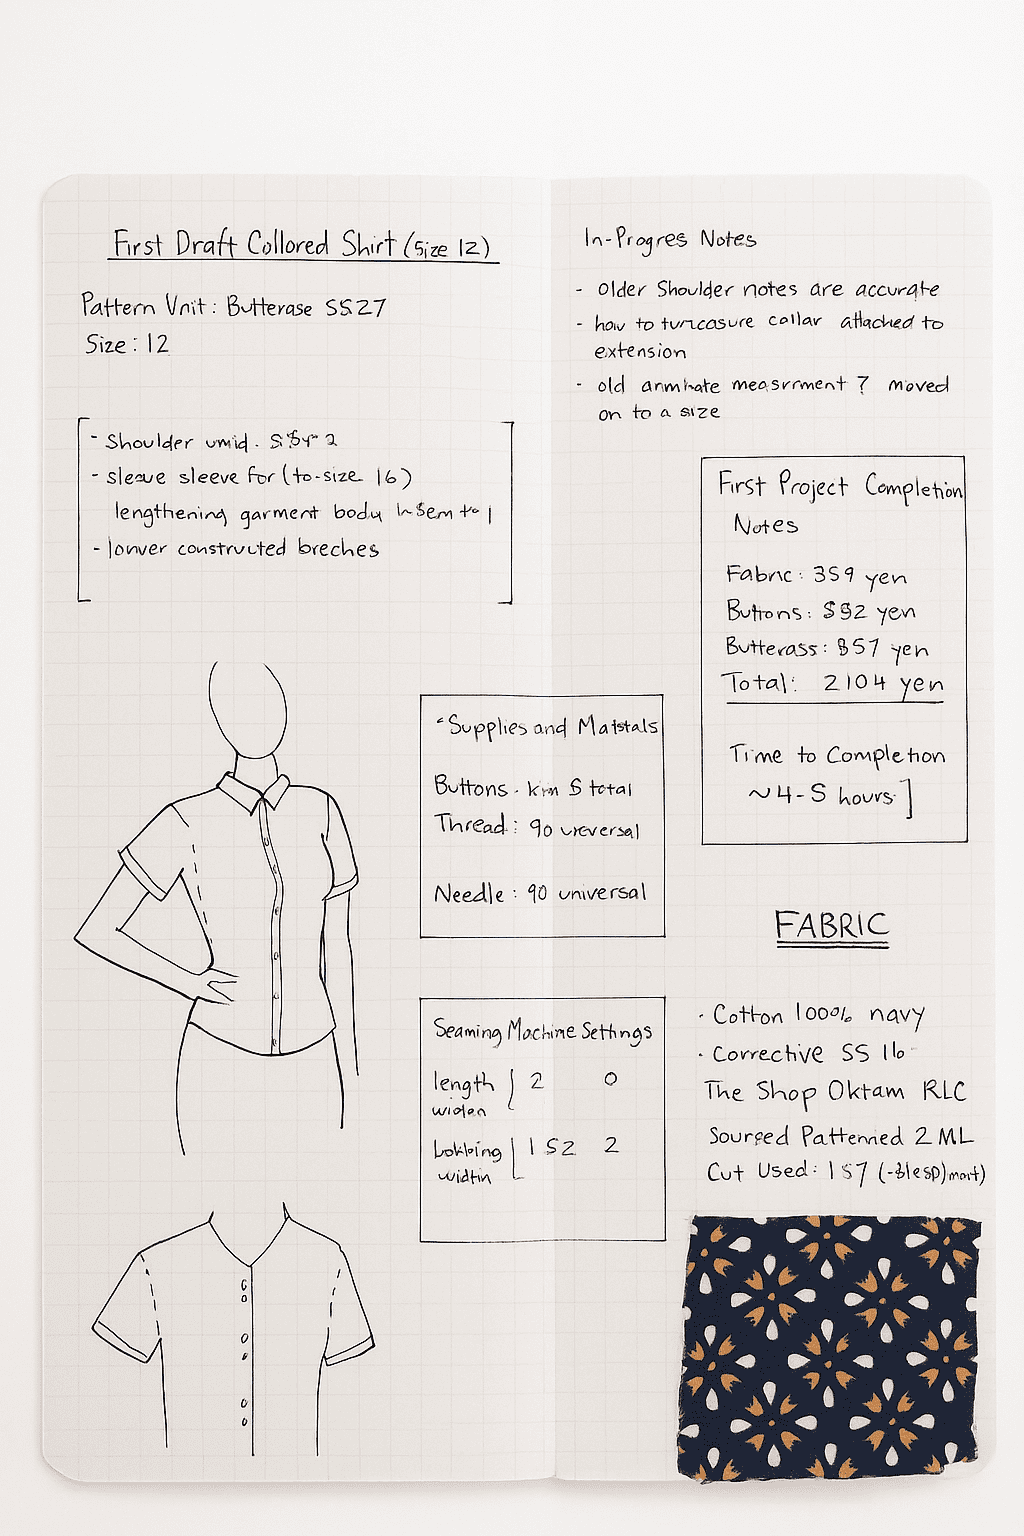 First Draft Collored Shirt (size 12)
Pattern Vnit: Butterase SS27
Size: 12
- Shoulder umid.
- sleave sleeve for (to-size 16)
lengthening garment body
- lonver constructed breches
In-Progres Notes
- older Shoulder notes are accurate
- how to collar attached to
extension
- old measurment ? moved
on to a size
First Project Completion
Notes
Fabric: 359 yen
Buttons: $92 yen
Butterass: $57 yen
Total: 2104 yen
Time to Completion
~4-5 hours]
Supplies and
Buttons. total
Thread: 90
Needle: 90 universal
Seaming Machine Settings
length 2 0
width
152 2
width
FABRIC
· Cotton 100% navy
· Corrective SS 16
The Shop Oktam RLC
Sourged Patterned 2 ML
Cut Used: 157